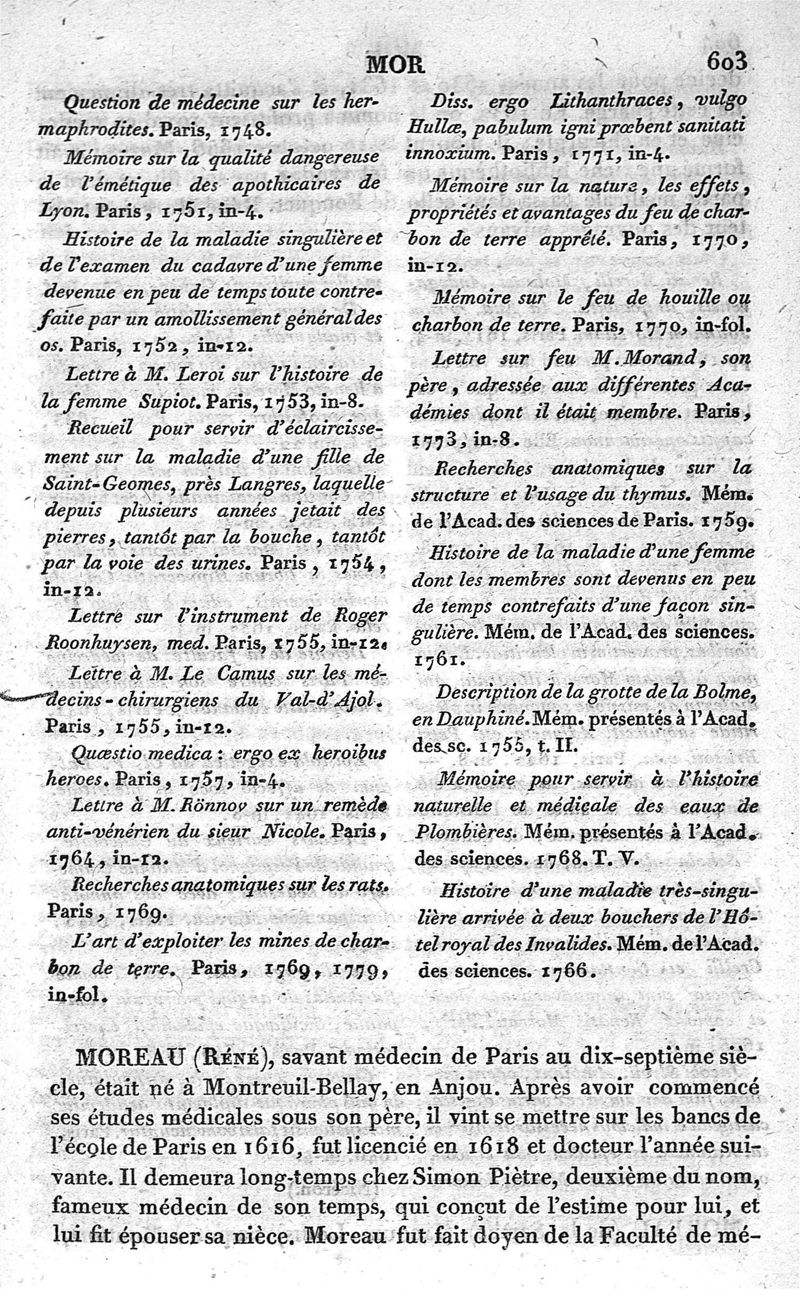 MOR
603
Question de médecine sur les her-
maphrodites. Paris, 1748.
Mémoire sur la qualité dangereuse
de l'émétique des apothicaires de
Lyon. Paris, 1751, in-4.
Histoire de la maladie singulière et
de l'examen du cadavre d'une femme
devenue en peu de temps toute contre-
faite par un amollissement général des
os. Paris, 1752, in-12.
Lettre à M. Leroi sur l'histoire de
la femme Supiot. Paris, 1753, in-8.
Recueil pour servir d'éclaircisse-
ment sur la maladie d'une fille de
Saint-Geomes, près Langres, laquelle
depuis plusieurs années jetait des
pierres, tantôt par la bouche, tantôt
par la voie des urines. Paris, 1754,
in-12.
Lettre sur l'instrument de Roger
Roonhuysen, med. Paris, 1755, in-12.
Lettre à M. Le Camus sur les mé-
decins-chirurgiens du Val-d'Ajol.
Paris, 1755, in-12.
Quæstio medica : ergo ex heroibus
heroes. Paris, 1757, in-4.
Lettre à M. Rönnov sur un remède
anti-vénérien du sieur Nicole. Paris,
1764, in-12.
Recherches anatomiques sur les rats.
Paris, 1769.
L'art d'exploiter les mines de char-
bon de terre. Paris, 1769, 1779,
in-fol.
Diss. ergo Lithanthraces, vulgo
Hullæ, pabulum igni præbent sanitati
innoxium. Paris, 1771, in-4.
Mémoire sur la nature, les effets,
propriétés et avantages du feu de char-
bon de terre apprêté. Paris, 1770,
in-12.
Mémoire sur le feu de houille ou
charbon de terre. Paris, 1770, in-fol.
Lettre sur feu M. Morand, son
père, adressée aux différentes Aca-
démies dont il était membre. Paris,
1773, in-8.
Recherches anatomiques sur la
structure et l'usage du thymus. Mém.
de l'Acad. des sciences de Paris. 1759.
Histoire de la maladie d'une femme
dont les membres sont devenus en peu
de temps contrefaits d'une façon sin-
gulière. Mém. de l'Acad. des sciences.
1761.
Description de la grotte de la Bolme,
en Dauphiné. Mém. présentés à l'Acad.
des sc. 1755, t. II.
Mémoire pour servir à l'histoire
naturelle et médicale des eaux de
Plombières. Mém. présentés à l'Acad.
des sciences. 1768. T. V.
Histoire d'une maladie très-singu-
lière arrivée à deux bouchers de l'Hô-
tel royal des Invalides. Mém. de l'Acad.
des sciences. 1766.
MOREAU (RÉNÉ), savant médecin de Paris au dix-septième siè-
cle, était né à Montreuil-Bellay, en Anjou. Après avoir commencé
ses études médicales sous son père, il vint se mettre sur les bancs de
l'école de Paris en 1616, fut licencié en 1618 et docteur l'année sui-
vante. Il demeura long-temps chez Simon Piètre, deuxième du nom,
fameux médecin de son temps, qui conçut de l'estime pour lui, et
lui fit épouser sa nièce. Moreau fut fait doyen de la Faculté de mé-